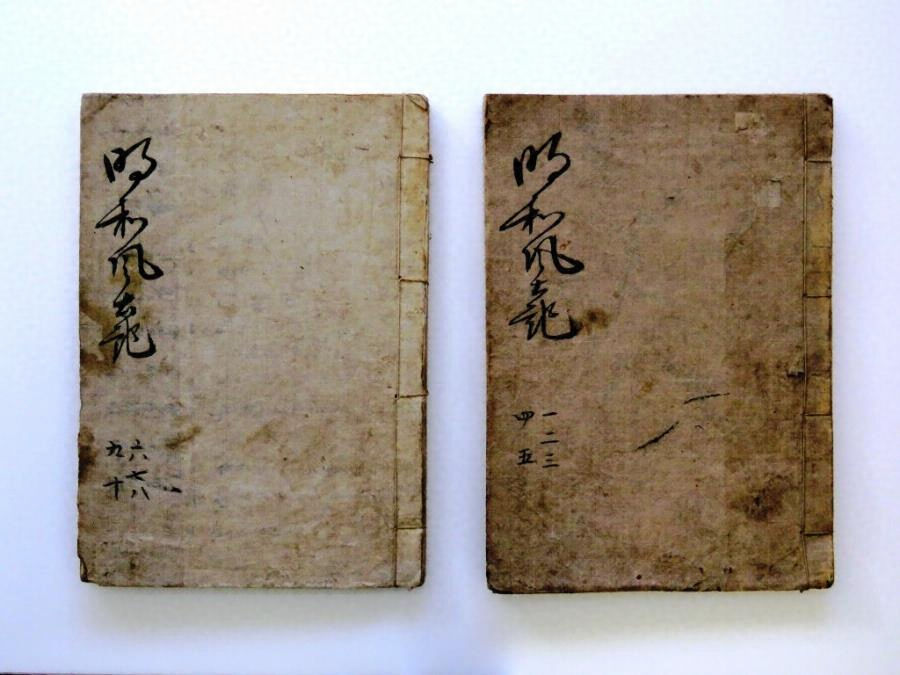 明和風土記
一二三
四五
明和風土記
六七八
九十